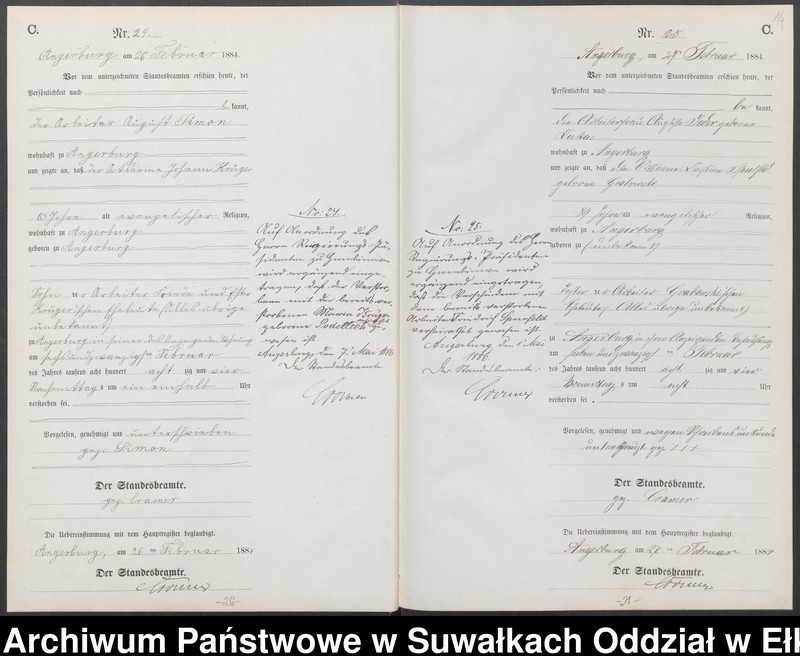 C.
Nr. 24.
Angerburg am 26 Februar 1884.
Vor dem unterzeichneten Standesbeamten erschien heute, der
Persönlichkeit nach
be kannt,
der Arbeiter August Simon
wohnhaft zu Angerburg
und zeigte an, daß der Ortsarme Johann Krüger
63 Jahre alt evangelischer Religion,
wohnhaft zu Angerburg
geboren zu Angerburg
Sohn der Arbeiter Friede und
Krügerschen Eheleute
unbekannt
zu Angerburg in seiner des Anzeigenden Behausung
am sechsundzwanzigsten Februar
des Jahres tausend acht hundert acht zig und vier
Nachmittags um ein einhalb Uhr
verstorben sei.
Vorgelesen, genehmigt und unterschrieben
gez. Simon
Der Standesbeamte.
gez. Cramer
Die Uebereinstimmung mit dem Hauptregister beglaubigt.
Angerburg, am 26 ten Februar 1884
Der Standesbeamte.
Cramer
-26-
No. 24.
Auf Anordnung des
Herrn Regierungs-Prä-
sidenten zu Gumbinnen
wird ergänzend einge-
tragen, daß der Verstor-
bene mit der bereits ver-
storbenen Maria Krüger
geborene Podellech ge-
wesen ist.
Angerburg, den 7. Mai 1886
Der Standesbeamte
Cramer
14
Nr. 25
C.
Angerburg, am 27 Februar 1884.
Vor dem unterzeichneten Standesbeamten erschien heute, der
Persönlichkeit nach
be kannt,
die Arbeiterfrau Auguste geborene
wohnhaft zu Angerburg
und zeigte an, daß die Ortsarme
geborene Grabowski
Jahre alt evangelischer Religion,
wohnhaft zu Angerburg
geboren zu (unbekannt)
Tochter der Arbeiter Grabowskischen
Eheleute unbekannt)
zu Angerburg in ihrer der Anzeigenden Behausung
am siebenundzwanzigsten Februar
des Jahres tausend acht hundert acht zig und vier
Vormittags um acht Uhr
verstorben sei.
Vorgelesen, genehmigt und wegen Schreibensunkunde
unterkreuzt gez. +++
Der Standesbeamte.
gez. Cramer
Die Uebereinstimmung mit dem Hauptregister beglaubigt.
Angerburg am 27 ten Februar 1884
Der Standesbeamte.
Cramer
-21-
No. 25.
Auf Anordnung des Herrn
Regierungs-Präsidenten
zu Gumbinnen wird
ergänzend eingetragen,
daß die Verstorbene mit
dem bereits verstorbenen
Arbeiter Friedrich
verheirathet gewesen ist.
Angerburg den 7. Mai
1886.
Der Standesbeamte:
Cramer
Archiwum Państwowe w Suwałkach Oddział w Ełk